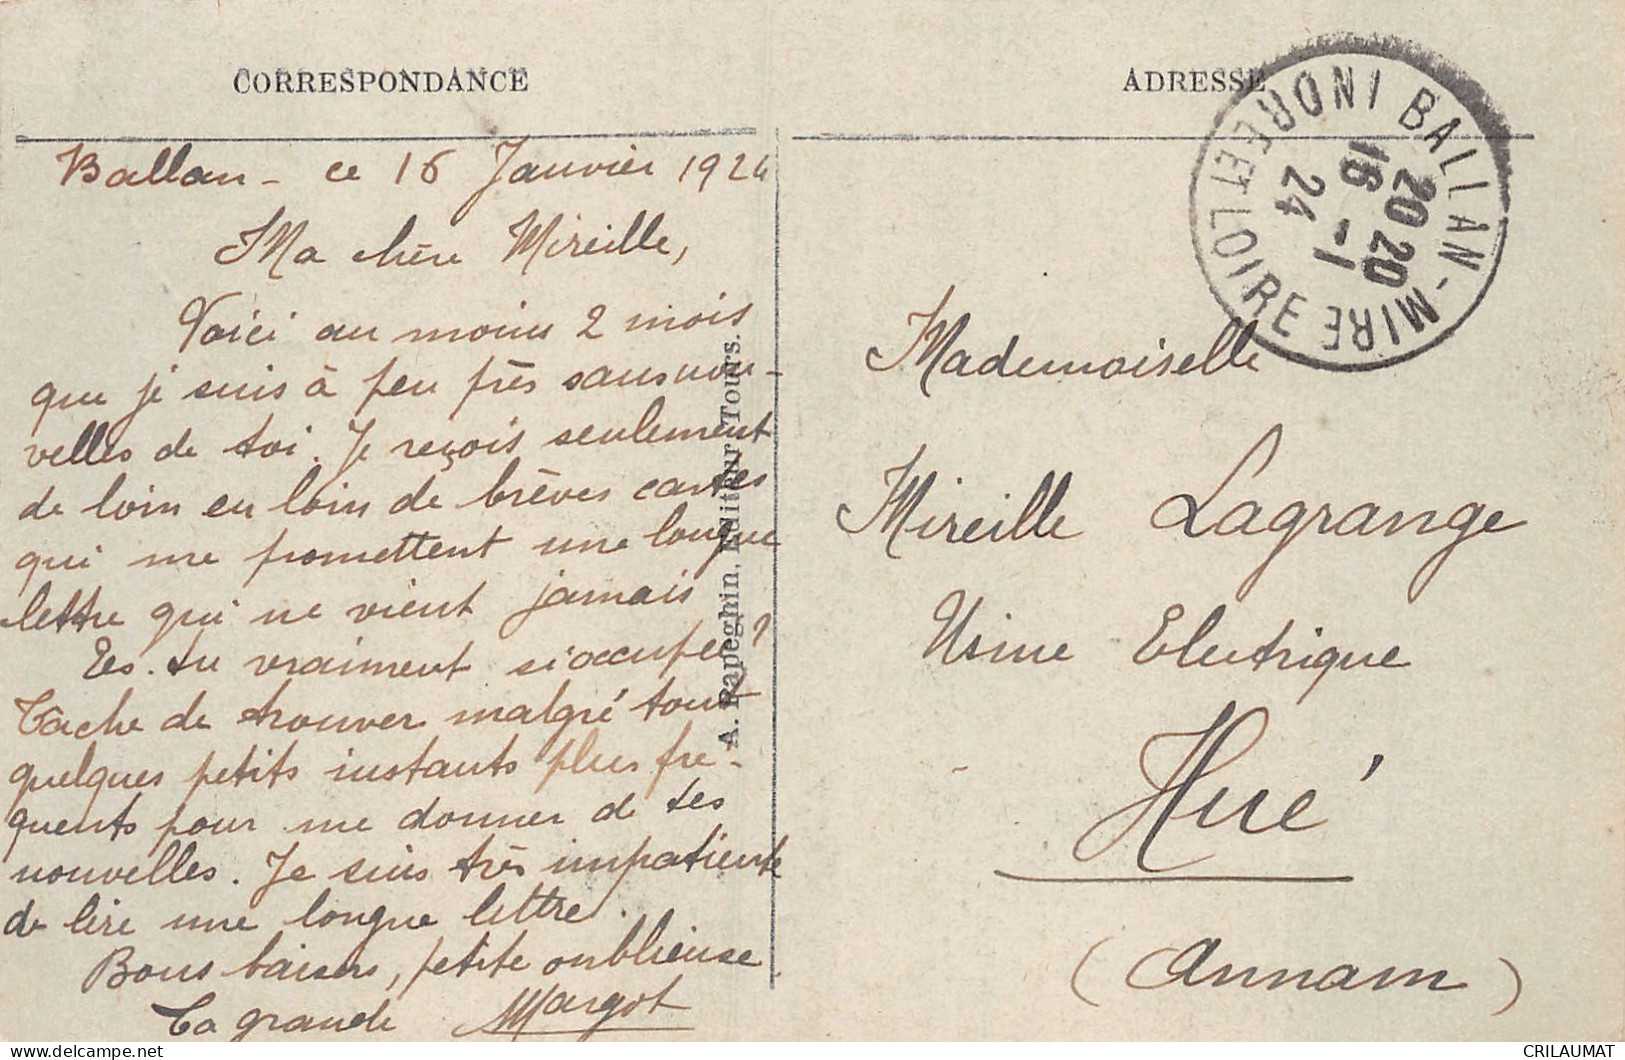 CORRESPONDANCE
Ballan - ce 16 Janvier 1924
Ma chère Mireille,
Voici au moins 2 mois
que je suis à peu près sans nou-
velles de toi. Je reçois seulement
de loin en loin de brèves cartes
qui me promettent une longue
lettre qui ne vient jamais
Es-tu vraiment si occupée?
Tâche de trouver malgré tout
quelques petits instants plus fré-
quents pour me donner de tes
nouvelles. Je suis très impatiente
de lire une longue lettre.
Bons baisers, petite oublieuse
Ta grande Margot
A. Papeghin, Editeur Tours.
ADRESSE
BALLAN-MIRE
INDRE ET LOIRE
20 20
16 -1
24
Mademoiselle
Mireille Lagrange
Usine Electrique
Hué
(Annam)
delcampe.net
CRILAUMAT